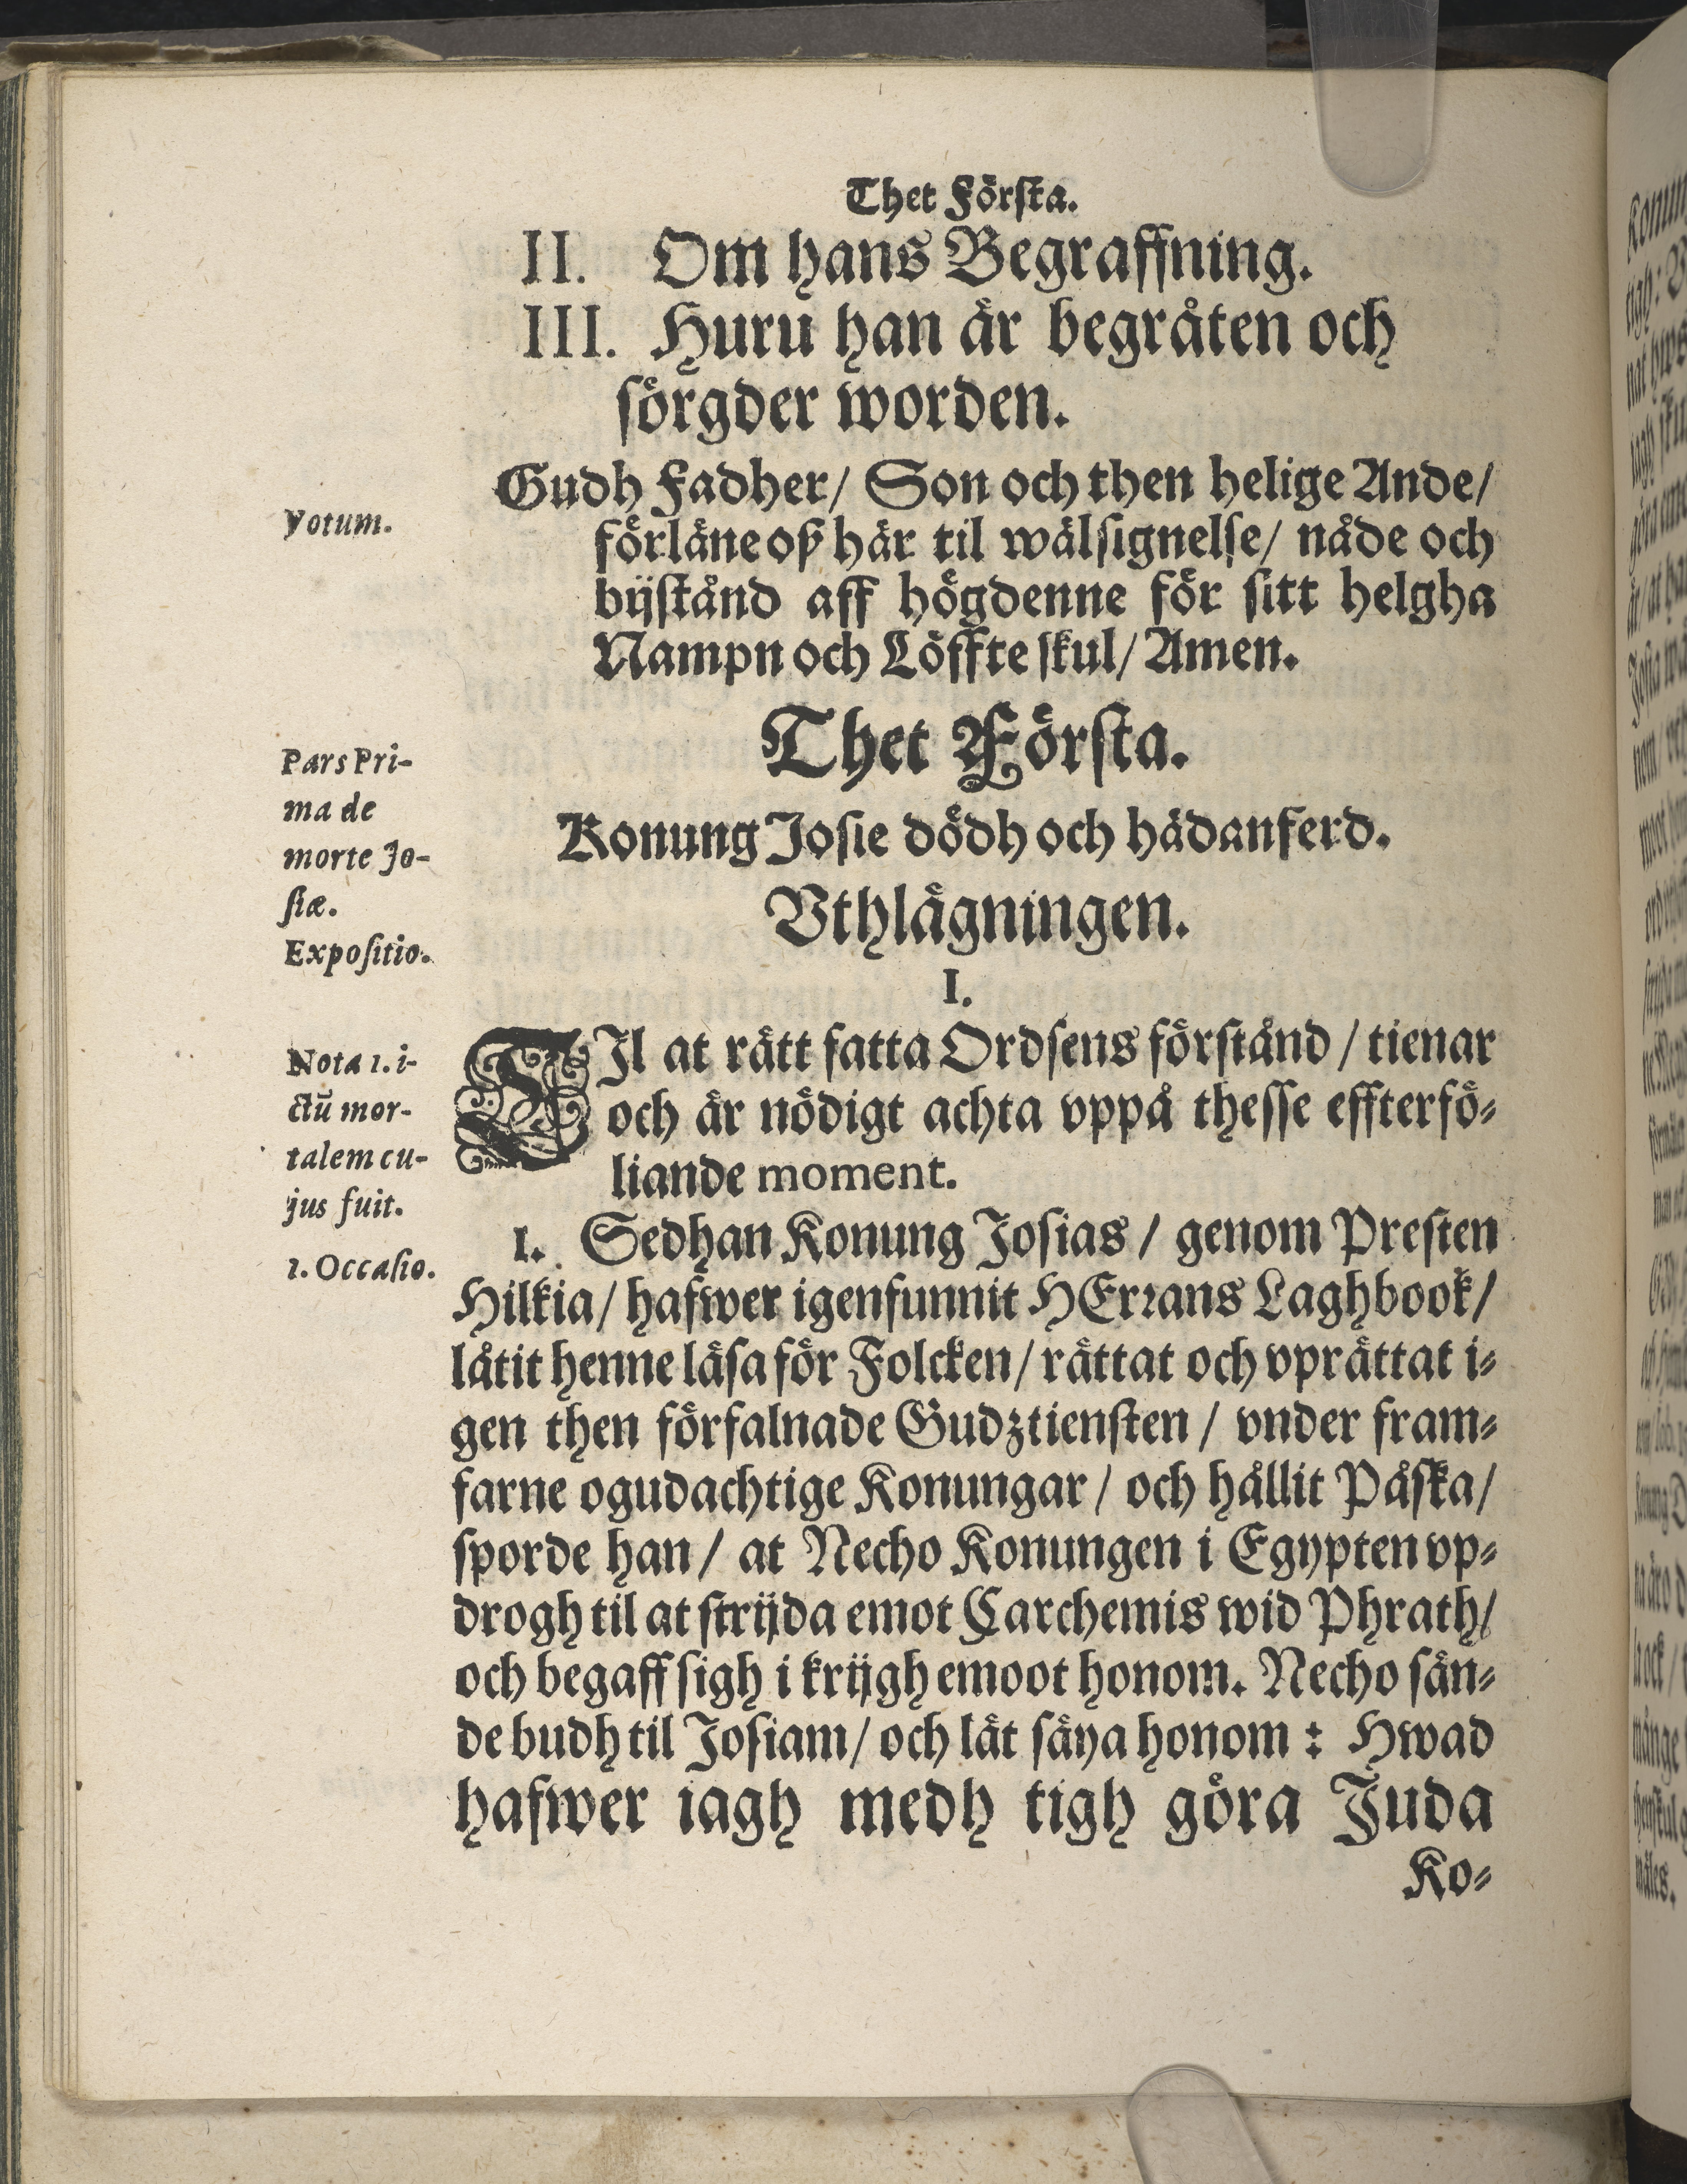 Thet Förſta.
II. Om hans Begraffning.
III. Huru han är begråten och
ſörgder worden.
Gudh Fadher/ Son och then helige Ande/
Votum.
förläne oß här til wälſignelſe/ nåde och
bijſtånd aff högdenne för ſitt helgha
Nampn och Löffte ſkul/ Amen.
Thet Förſta.
Pars Pri-
ma de
morte Jo-
ſiæ.
Konung Joſie dödh och hädanferd.
Vthlägningen.
Expoſitio.
I.
TIl at rätt fatta Ordſens förſtånd / tienar
och är nödigt achta vppå theſſe effterfö-
liande moment.
Nota 1. i-
ctū mor-
talem cu-
jus fuit.
1. Occaſio.
1. Sedhan Konung Joſias / genom Preſten
Hilkia/ hafwer igenfunnit HErrans Laghbook/
låtit henne läſa för Folcken/ rättat och vprättat i-
gen then förfalnade Gudztienſten / vnder fram-
farne ogudachtige Konungar / och hållit Påſka/
ſporde han / at Necho Konungen i Egypten vp-
drogh til at ſtrijda emot Carchemis wid Phrath/
och begaff ſigh i krijgh emoot honom. Necho ſän-
de budh til Joſiam/ och lät ſäya honom : Hwad
hafwer iagh medh tigh göra Juda
Ko-